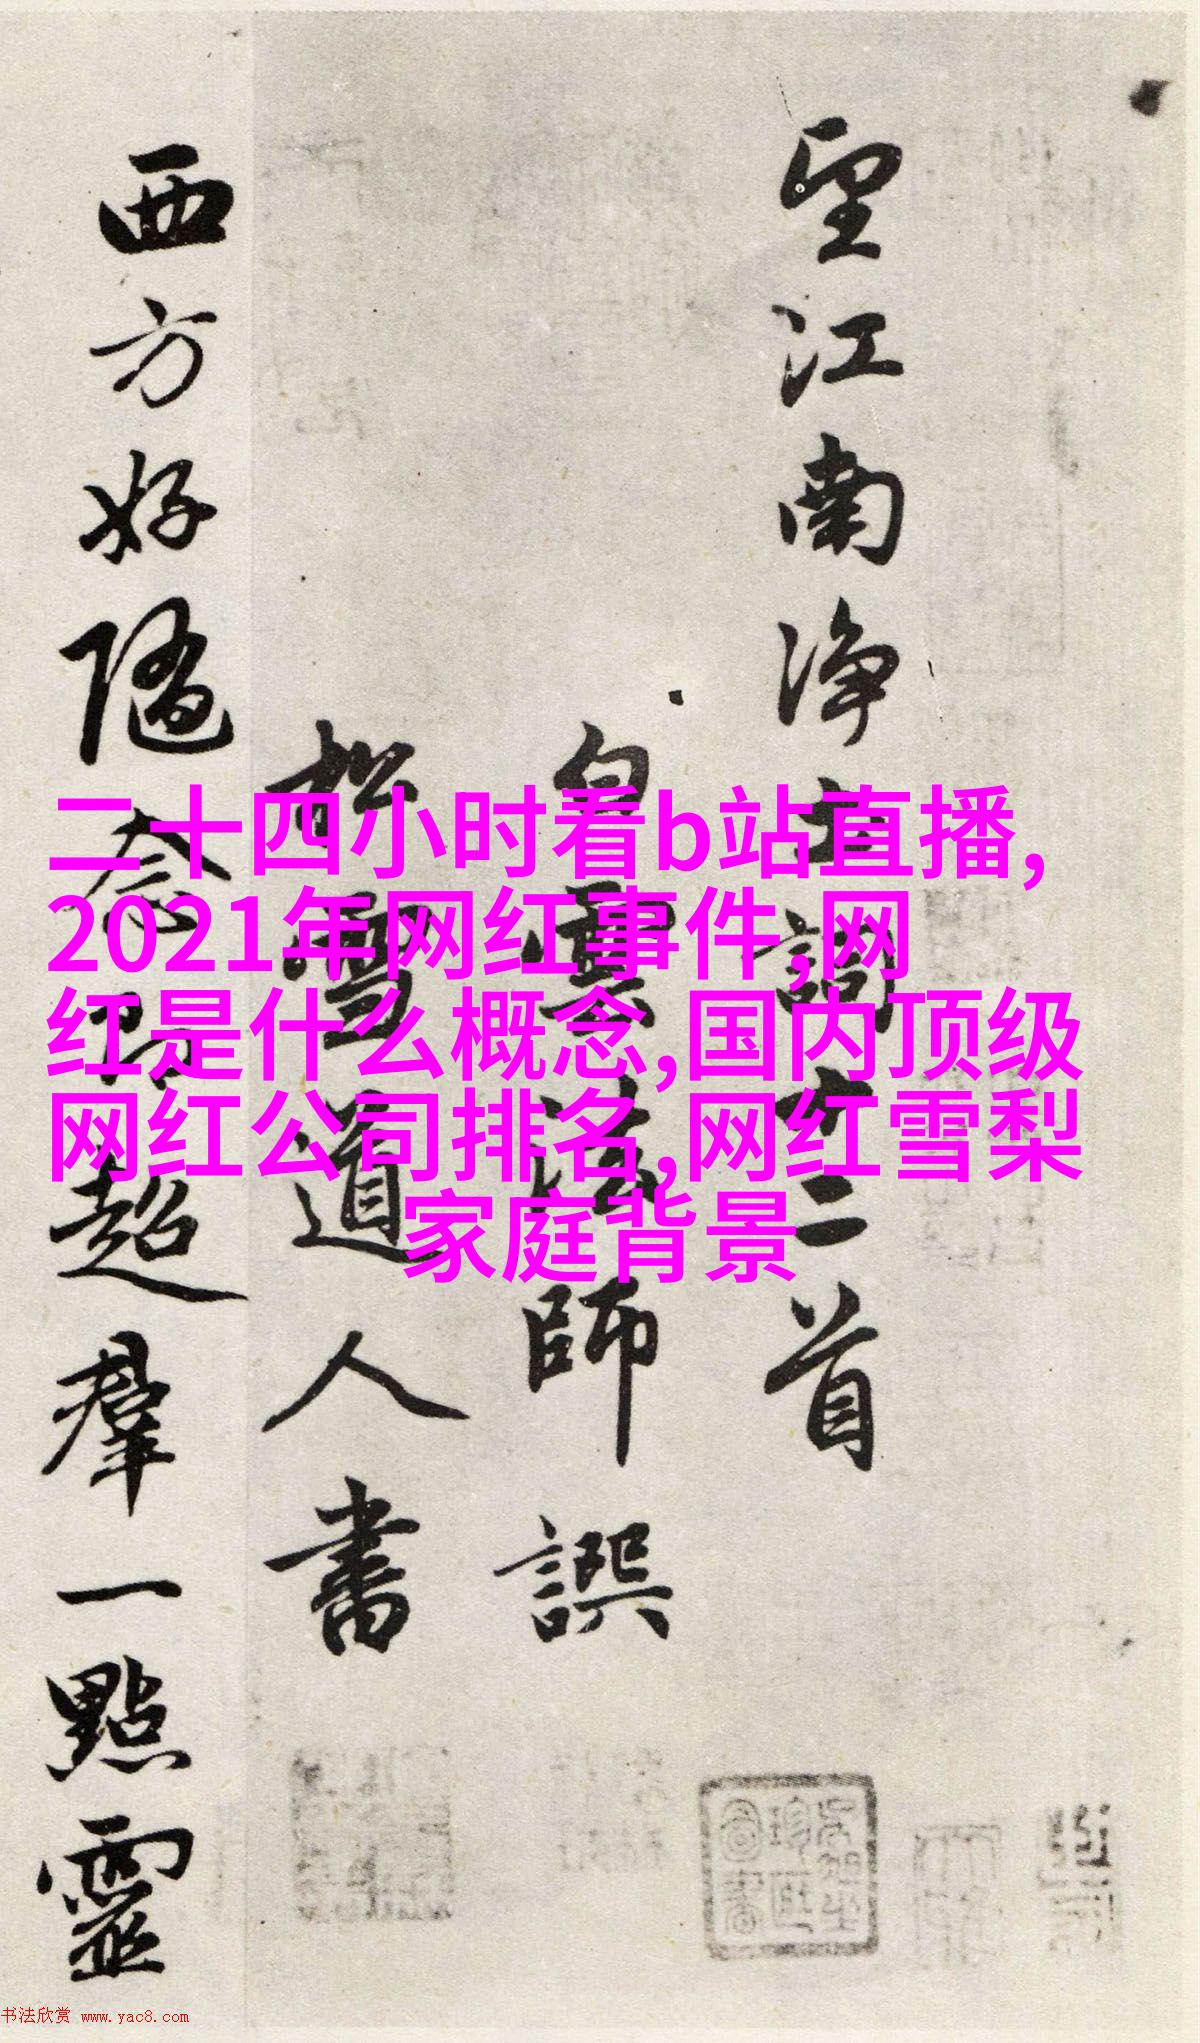 望江南淨土詞十二首
白雲法師譔
松雪道人書
西方好隨念即超羣一點靈
二十四小时看b站直播,
2021年网红事件,网
红是什么概念,国内顶级
网红公司排名,网红雪梨
家庭背景
书法欣赏 www.yac8.com